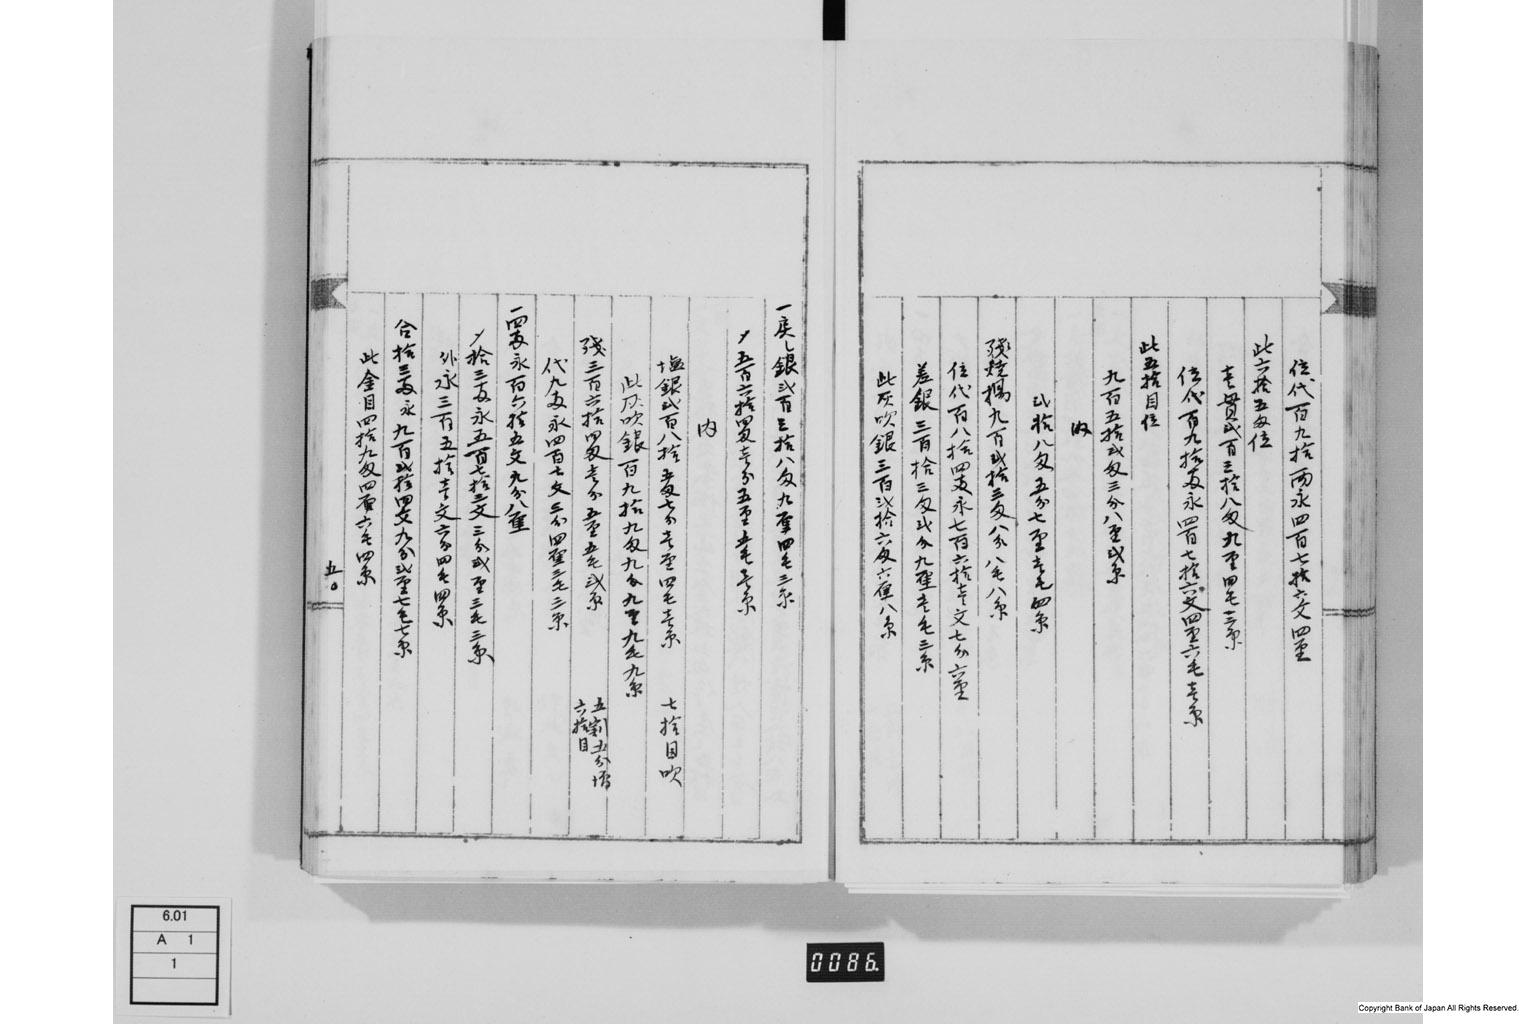 位代百九拾両永四百七拾六文四厘
此六拾五匁位
壱貫弐百三拾八匁九厘四毛三糸
位代百九拾両永四百七拾六文四厘六毛壱糸
此五拾目位
九百五拾弐匁三分八厘弐糸
内
弐拾八匁五分七厘壱毛四糸
残焼揚九百弐拾三匁八分八毛八糸
位代百八拾四両永七百六拾壱文七分六厘
差銀三百拾三匁弐分九厘壱毛三糸
此灰吹銀三百弐拾六匁六厘八糸
一戻し銀弐百三拾八匁九厘四毛三糸
〆五百六拾四匁壱分五厘五毛壱糸
内
塩銀弐百八拾五匁七分壱厘四毛壱糸 七拾目吹
此灰吹銀百九拾九匁九分九厘九毛九糸
残三百六拾四匁壱分五厘五毛弐糸 五割五分増
六拾目
代九両永四百七文三分四厘三毛三糸
一四両永百六拾五文九分八厘
〆拾三両永五百七拾三文三分弐厘三毛三糸
外永三百五拾壱文六分四毛四糸
合拾三両永九百弐拾四文九分弐厘七毛七糸
此金目四拾九匁四厘六毛四糸
五〇
6.01
A 1
1
0086.
Copyright Bank of Japan All Rights Reserved.